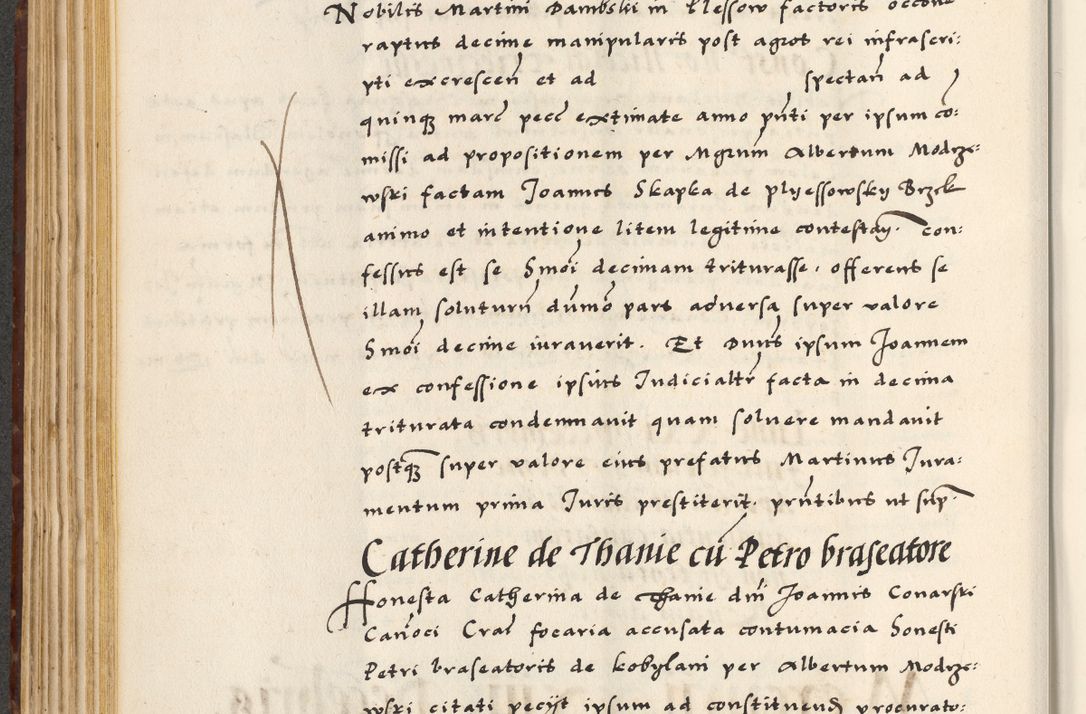 Nobilis Martini Dambski in Clessow factoris occone
raptus decime manipularis post agros rei infrascri:
pti excrescen et ad spectan ad
quinqȝ marc pecc extimate anno pñti per ipsum co:
missi ad propositionem per Mgrum Albertum Modrze:
wski factam Joannes Skapka de plyessowsky Brzek
animo et intentione litem legitime contestan. con:
fessus est se Smoi decimam triturasse, offerens se
illam soluturum dumo pars adversa super valore
Smoi decime iuraverit. Et Dnus ipsum Joannem
ex confessione ipsius Iudicialtr facta in decima
triturata condemnavit quam solvere mandavit
postqȝ super valore eius prefatus Martinus Iura:
mentum prima Iuris prestiterit. prñtibus ut sup.
Catherine de Thanie cu Petro braseatore
Honesta Catherina de Thanie dni Joannis Conarski
Canoci Crac focaria accusata contumacia Honesti
Petri braseatoris de kobylani per Albertum Modrze:
wski citati pecyt ipsum ad constituend procurato: